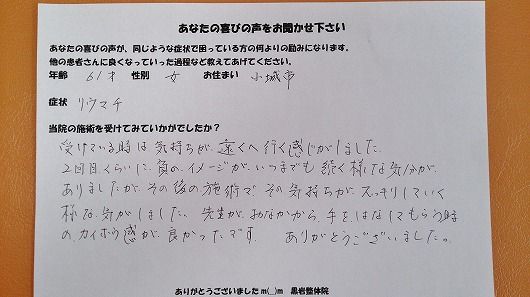 あなたの喜びの声をお聞かせ下さい
あなたの喜びの声が、同じような症状で困っている方の何よりの励みになります。
他の患者さんに良くなっていった過程など教えてあげてください。
年齢 61才 性別 女 お住まい 小城市
症状 リウマチ
当院の施術を受けてみていかがでしたか?
受けている時は気持ちが、遠くへ行く感じがしました。
2回目くらいに、負のイメージが、いつまでも続く様な気分が
ありましたが、その後の施術で その気持ちが スッキリしていく
様な気がしました、 先生が、おなかから、手をはなしてもらう時
の、カイホウ感が、良かったです。 ありがとうございました。
ありがとうございました m(__)m 黒岩整体院